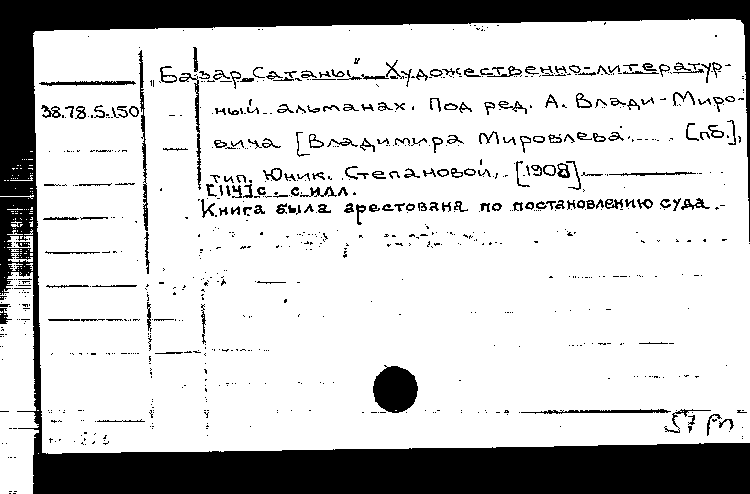 „Базар Сатаны". Художественно-литератур-
38.78.5.150 ный альманах. Под ред. А. Влади-Миро-
вича [Владимира Мировлева. [пб.],
тип. Юник. Степановой, [1908]
[114] с. с илл.
Книга была арестована по постановлению суда.
57